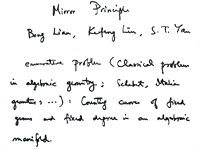 Mirror Principle
Bong Lian, Kefeng Liu, S.T. Yau
enumerative problem (Classical problem
in algebraic geometry; Schubert, Italian
geometers, ...): Counting curves of fixed
genus and fixed degree in an algebraic
manifold.